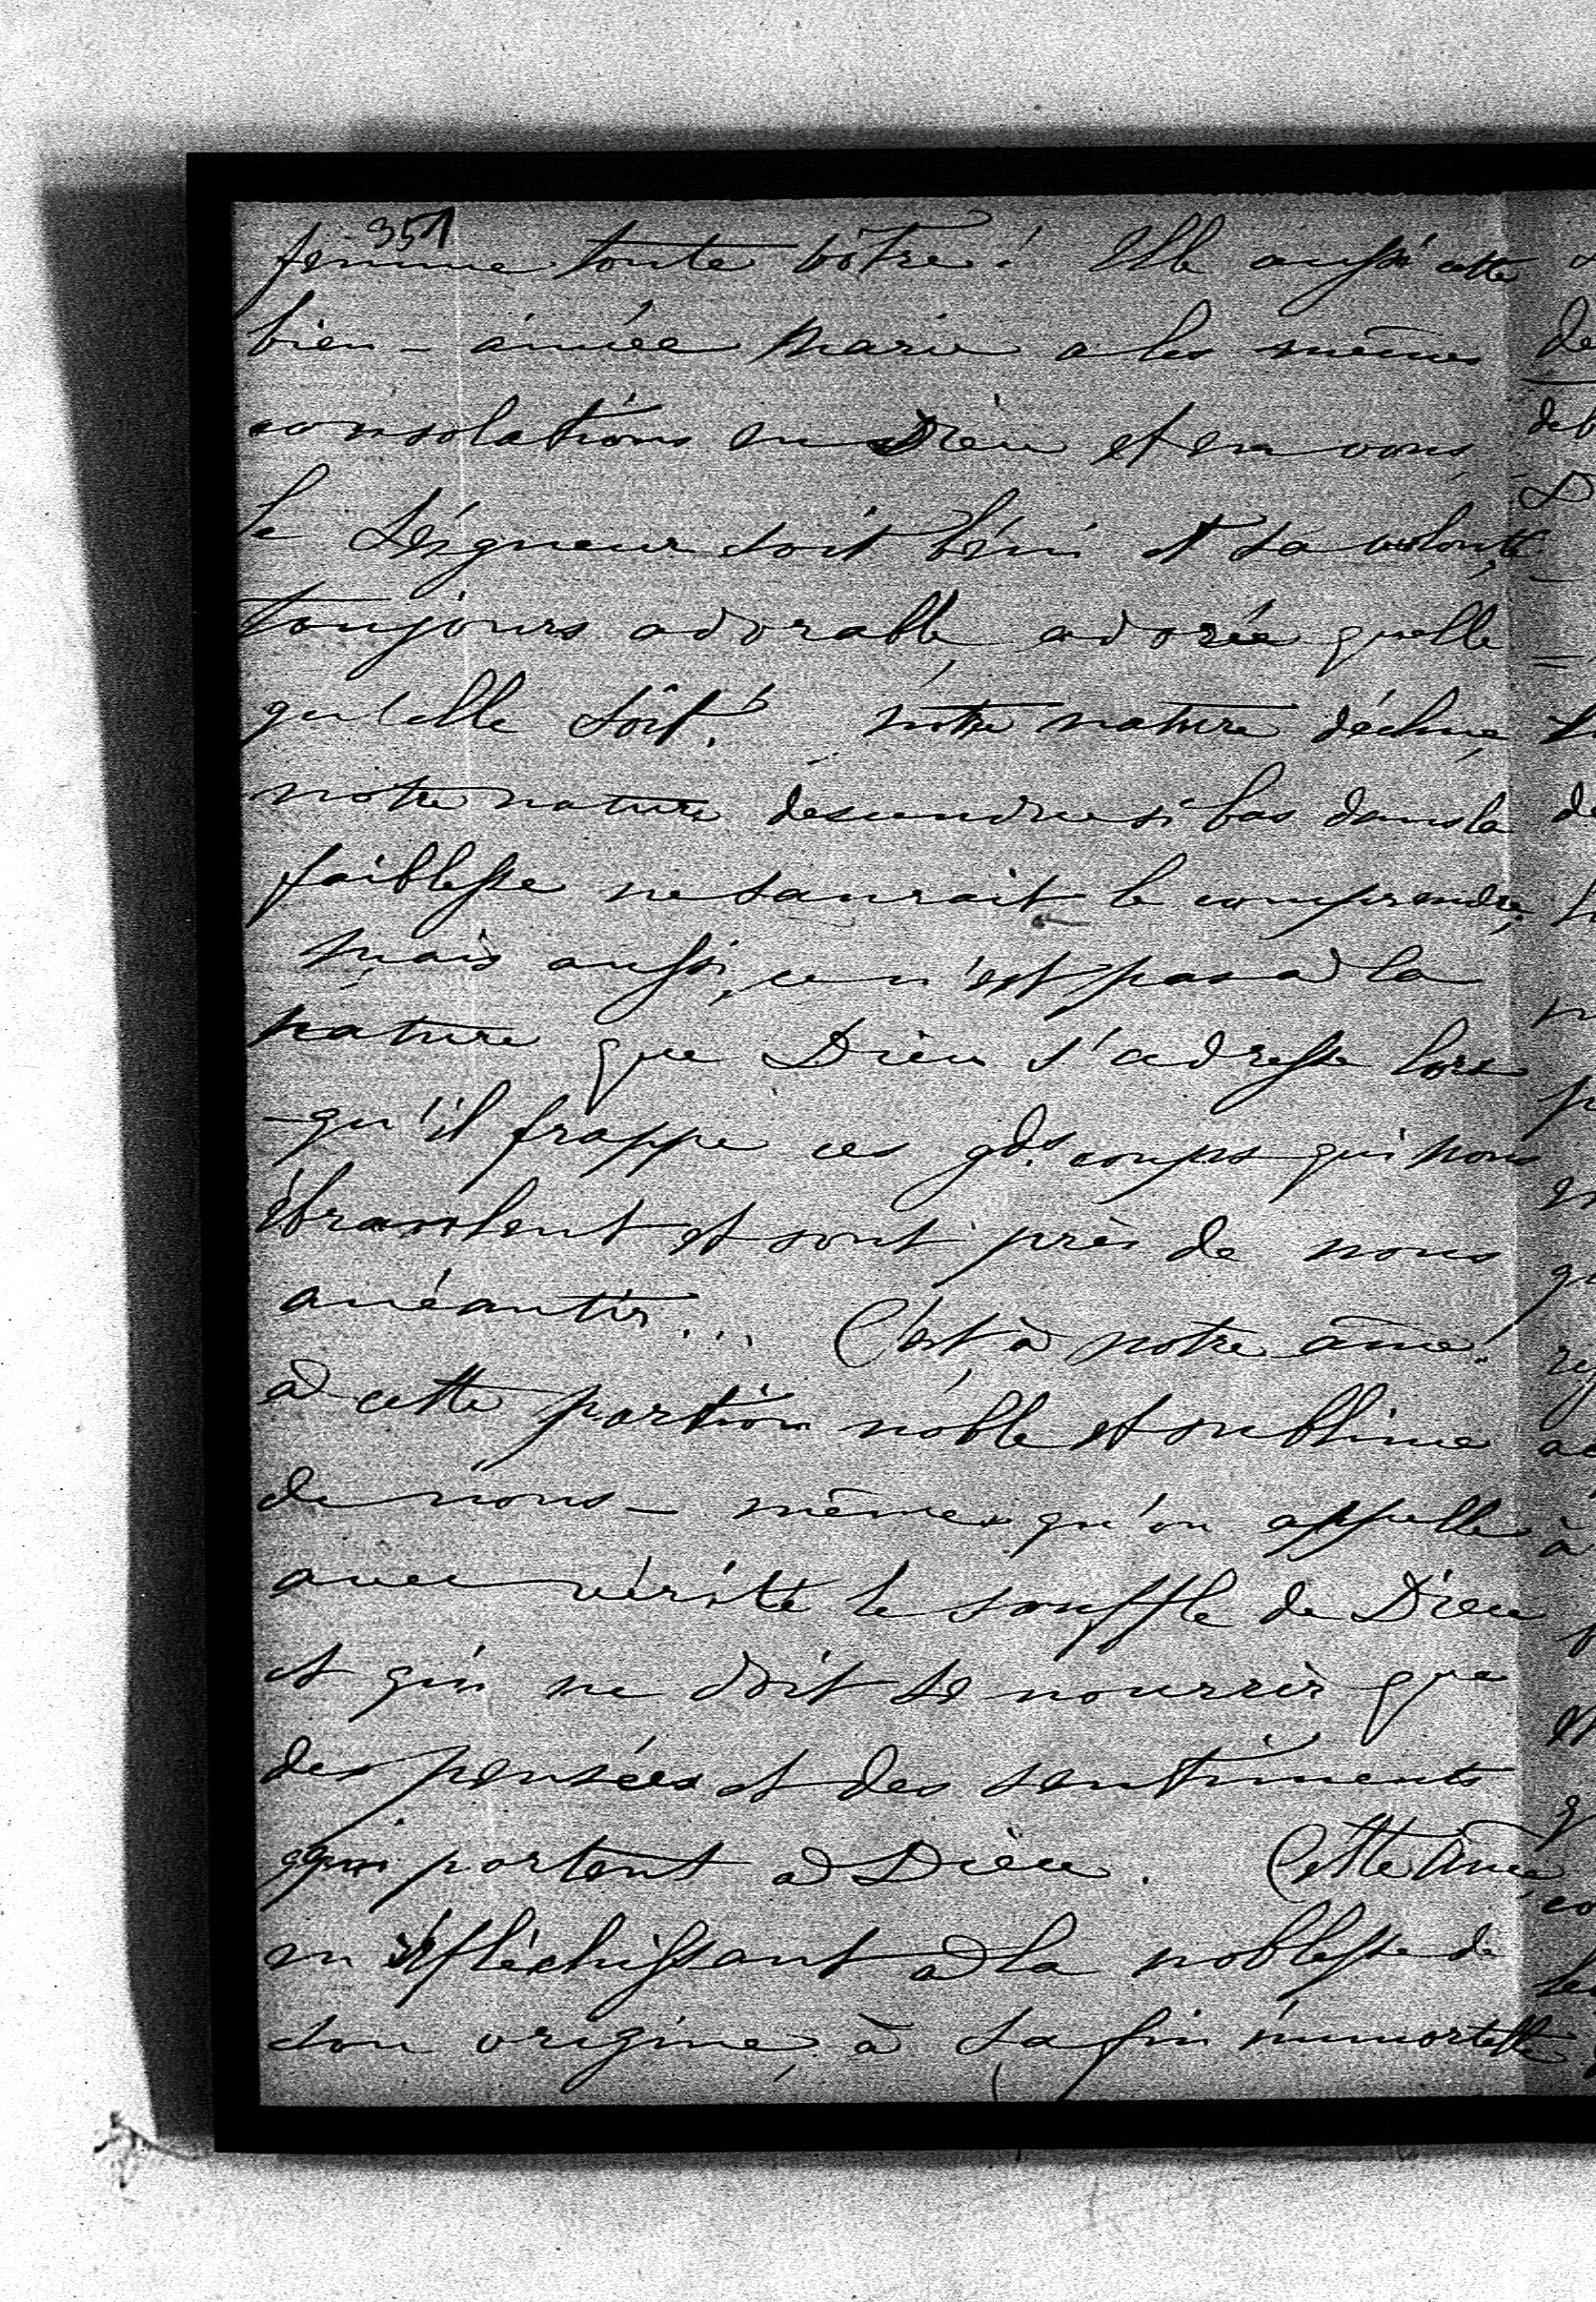 351
femme toute vôtre ! Elle aussi cette
bien-aimée Marie a les mêmes
consolations en Dieu et en vous
le Seigneur soit béni et sa volonté
toujours adorable, adorée quelle
qu'elle soit ! notre nature déchue,
notre nature descendue si bas dans la
faiblesse ne saurait le comprendre,
mais aussi, ce n'est pas à la
nature que Dieu s'adresse lors
-qu'il frappe ces gds coups qui nous
ébranlent et sont près de nous
anéantir... C'est à notre âme !
à cette portion noble et sublime
de nous-mêmes qu'on appelle
avec vérité le souffle de Dieu
et qui ne doit se nourrir que
des pensées et des sentiments
qui portent à Dieu. Cette âme,
en réfléchissant à la noblesse de
son origine, à sa fin immortelle